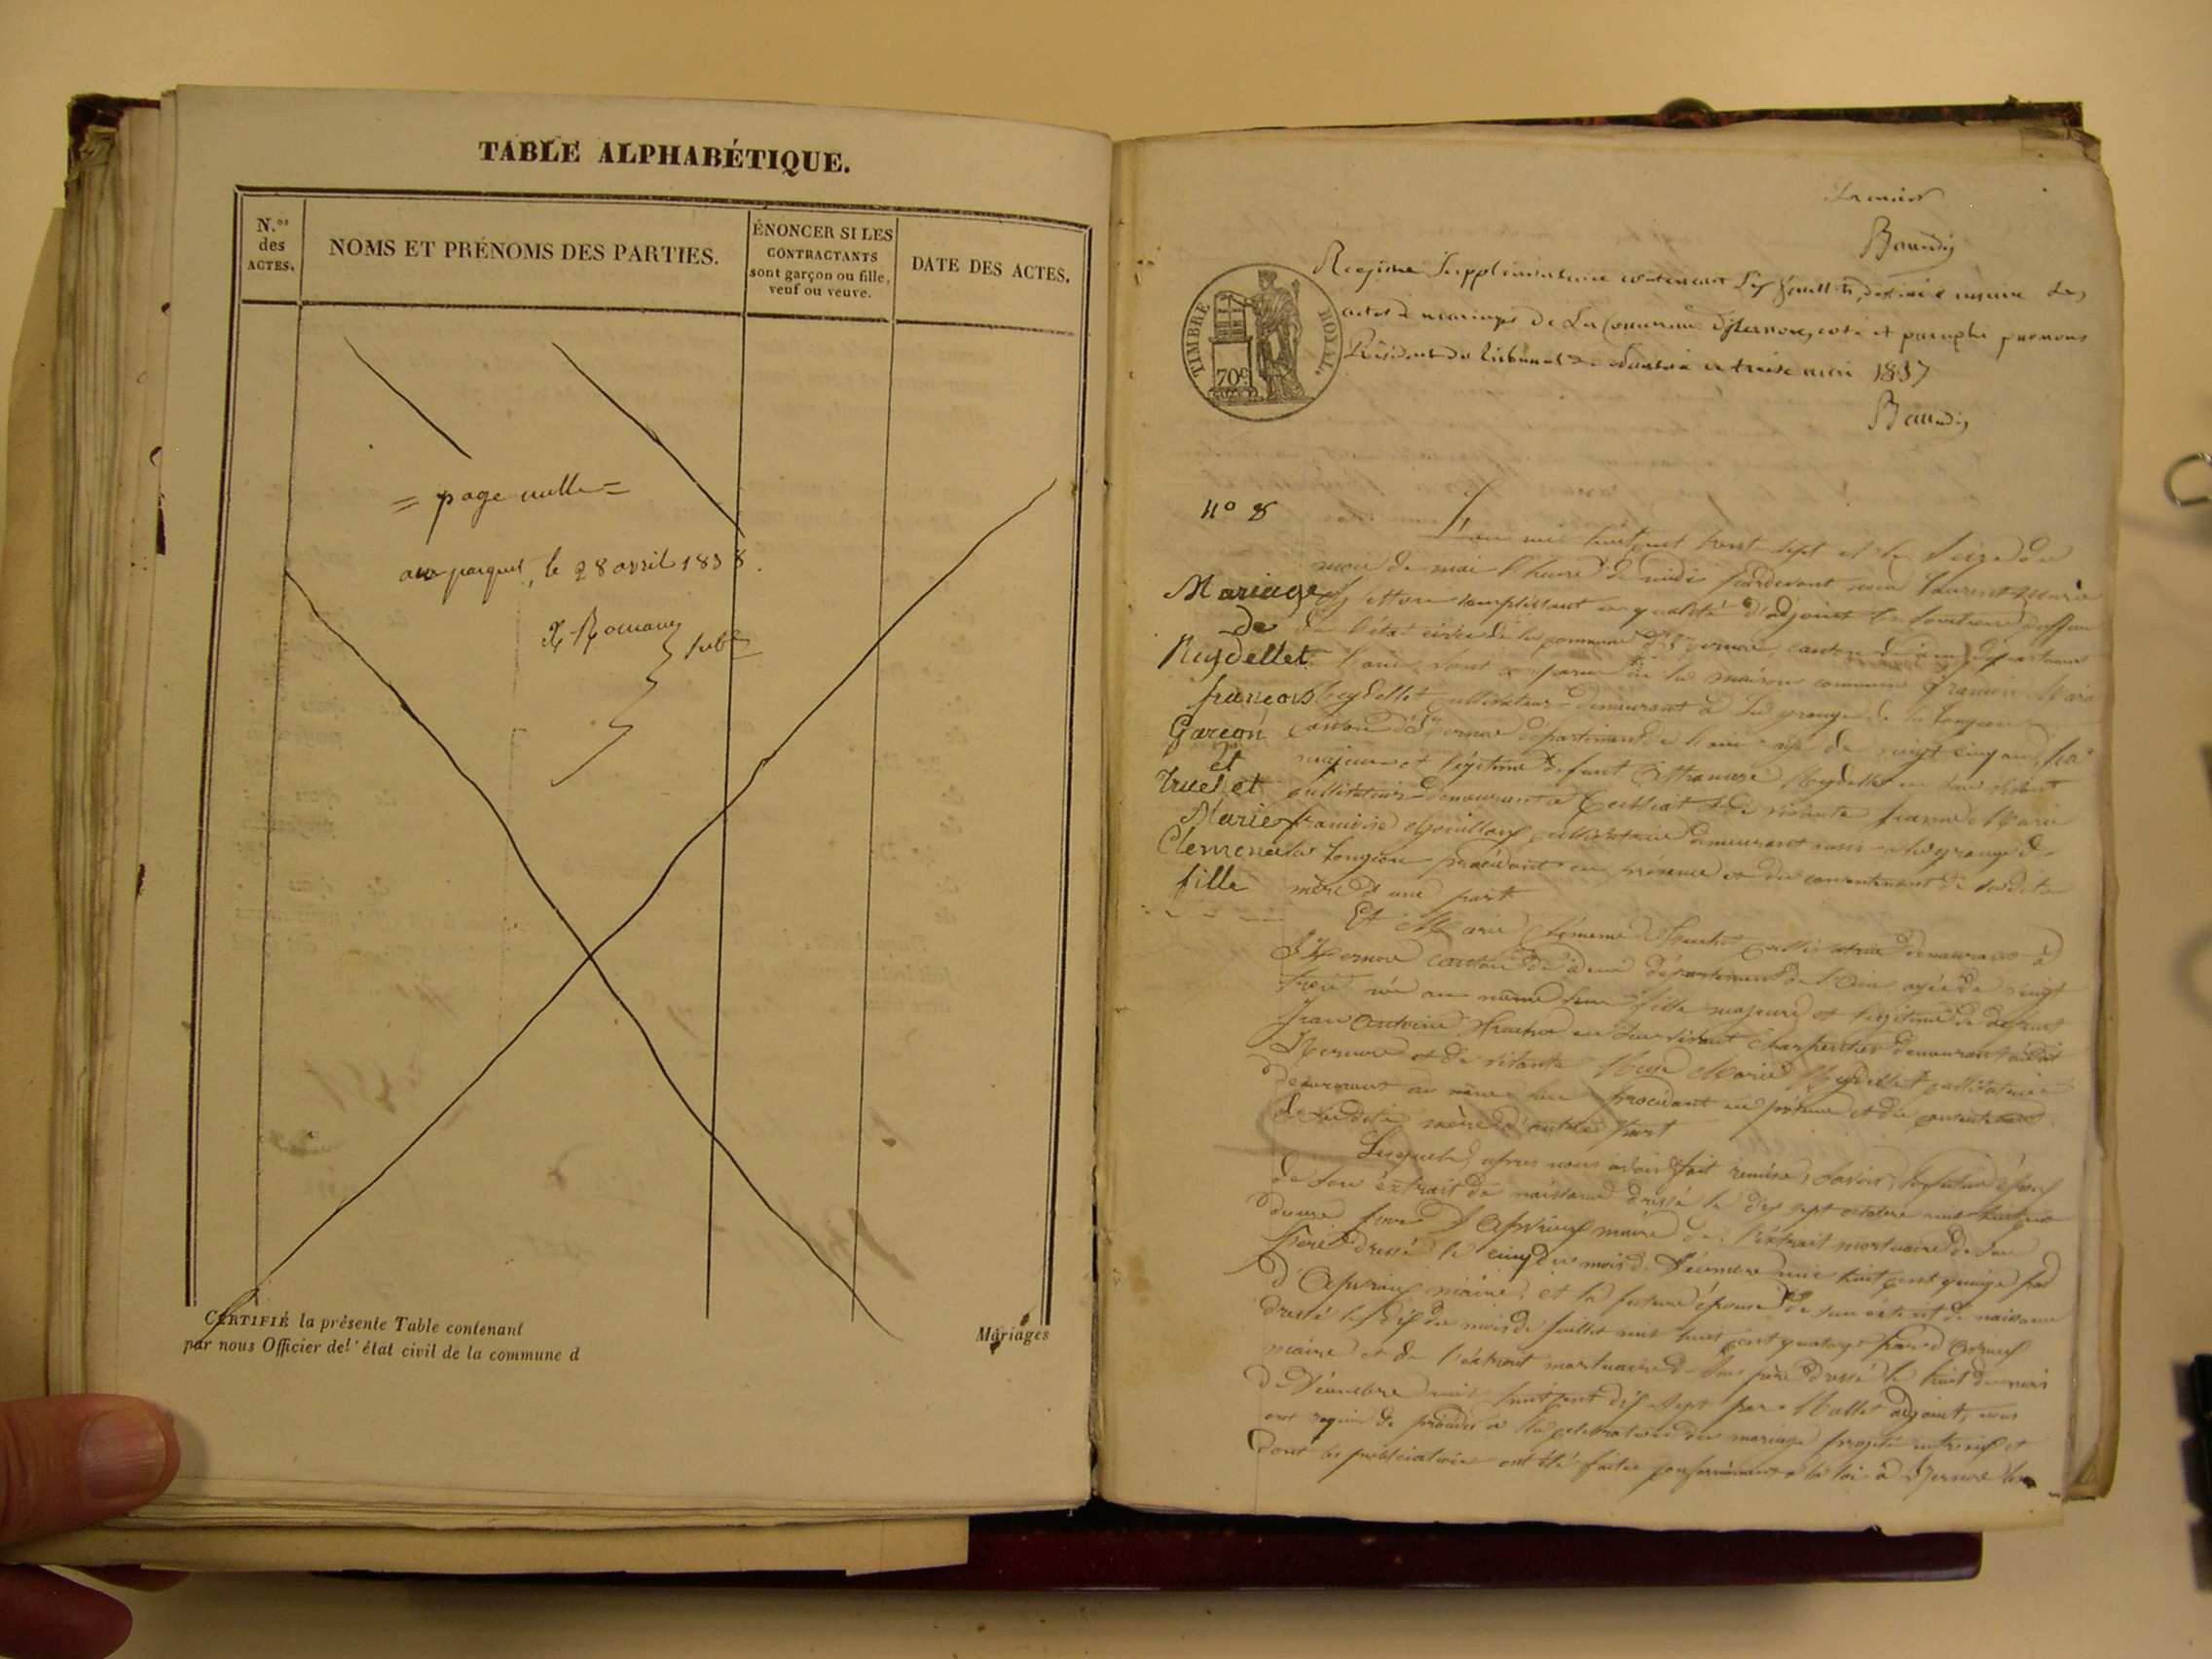 TABLE ALPHABÉTIQUE.
N.os
des
ACTES.
NOMS ET PRÉNOMS DES PARTIES.
ÉNONCER SI LES
CONTRACTANTS
sont garçon ou fille,
veuf ou veuve.
DATE DES ACTES.
= page nulle =
au parquet, le 28 avril 1838.
CERTIFIÉ la présente Table contenant
Mariages
par nous Officier de l'état civil de la commune d
Premier
Baudin
Registre Supplémentaire contenant feuillets, destiné à inscrire les
actes de mariages de la Commune d'Izernore, coté et paraphé par nous
Président du tribunal de Nantua ce treize mai 1837
Baudin
TIMBRE ROYAL.
70c
N° 8
Mariage
de
Reydellet
françois
Garçon
et
Truchet
Marie
Clemence
fille
L'an mil huit cent trente sept et le seize du
mois de mai l'heure de midi pardevant nous Laurent Marie
remplissant en qualité d'adjoint les fonctions d'officier
de l'état civil de la commune d'Izernore, canton de département
de l'ain, sont comparu en la maison commune François Marie
Reydellet cultivateur demeurant à la grange de
canton d'Izernore département de l'ain agé de vingt cinq ans, fils
majeur et légitime de défunt Reydellet en son vivant
cultivateur demeurant à Ceissiat et de vivante Jeanne Marie
françoise cultivatrice demeurant aussi à la grange de
procédant en présence et du consentement de sadite
mère d'une part
Et Marie Clémence Truchet cultivatrice demeurant à
Izernore canton de département de l'Ain agée de vingt
trois née au même lieu fille majeure et légitime de défunt
Jean Antoine Truchet en son vivant charpentier demeurant audit
Izernore et de vivante Marie Reydellet cultivatrice
demeurant au même lieu procédant en présence et du consentement
de sadite mère d'autre part
Lesquels, après nous avoir fait remise, savoir, le futur époux
de son extrait de naissance dressé le dix sept octobre mil huit cent
douze par maire de l'extrait mortuaire de son
père dressé le cinq du mois de Décembre mil huit cent quinze par
maire, et la future épouse de son extrait de naissance
dressé le dix du mois de juillet mil huit cent quatorze par
maire et de l'extrait mortuaire de son père dressé le huit du mois
de Décembre mil huit cent dix sept par Mallet adjoint, nous
ont requis de procéder à la célébration du mariage projeté entr'eux et
dont les publications ont été faites conformément à la loi à Izernore